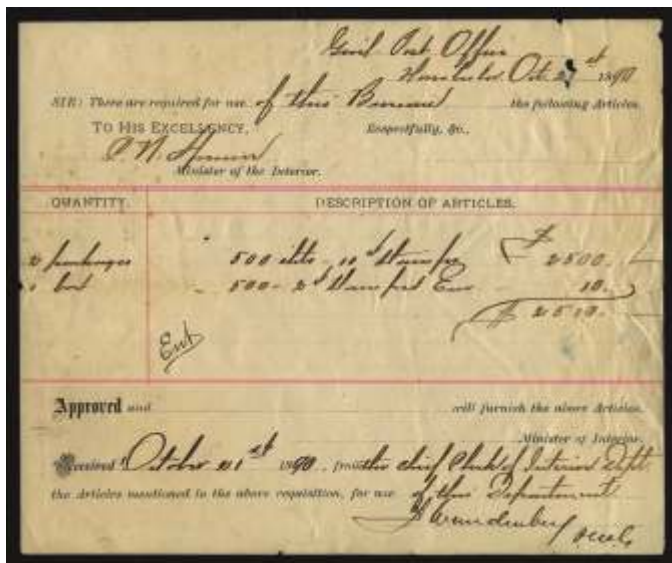 Genl Post Office
Honolulu Oct. 21st 1890
SIR: There are required for use of this Bureau the following Articles.
TO HIS EXCELLENCY, Respectfully, &c.,
Minister of the Interior.
QUANTITY. DESCRIPTION OF ARTICLES.
2 packages 500 shts - 10 Stamps $ 2500.
1 box 500 - 2 Stamped Env 10.
$ 2510.
Ent
Approved and will furnish the above Articles.
Minister of Interior.
Received October 21st 1890, from the Chief Clerk of Interior Dept
the Articles mentioned in the above requisition, for use of this Department